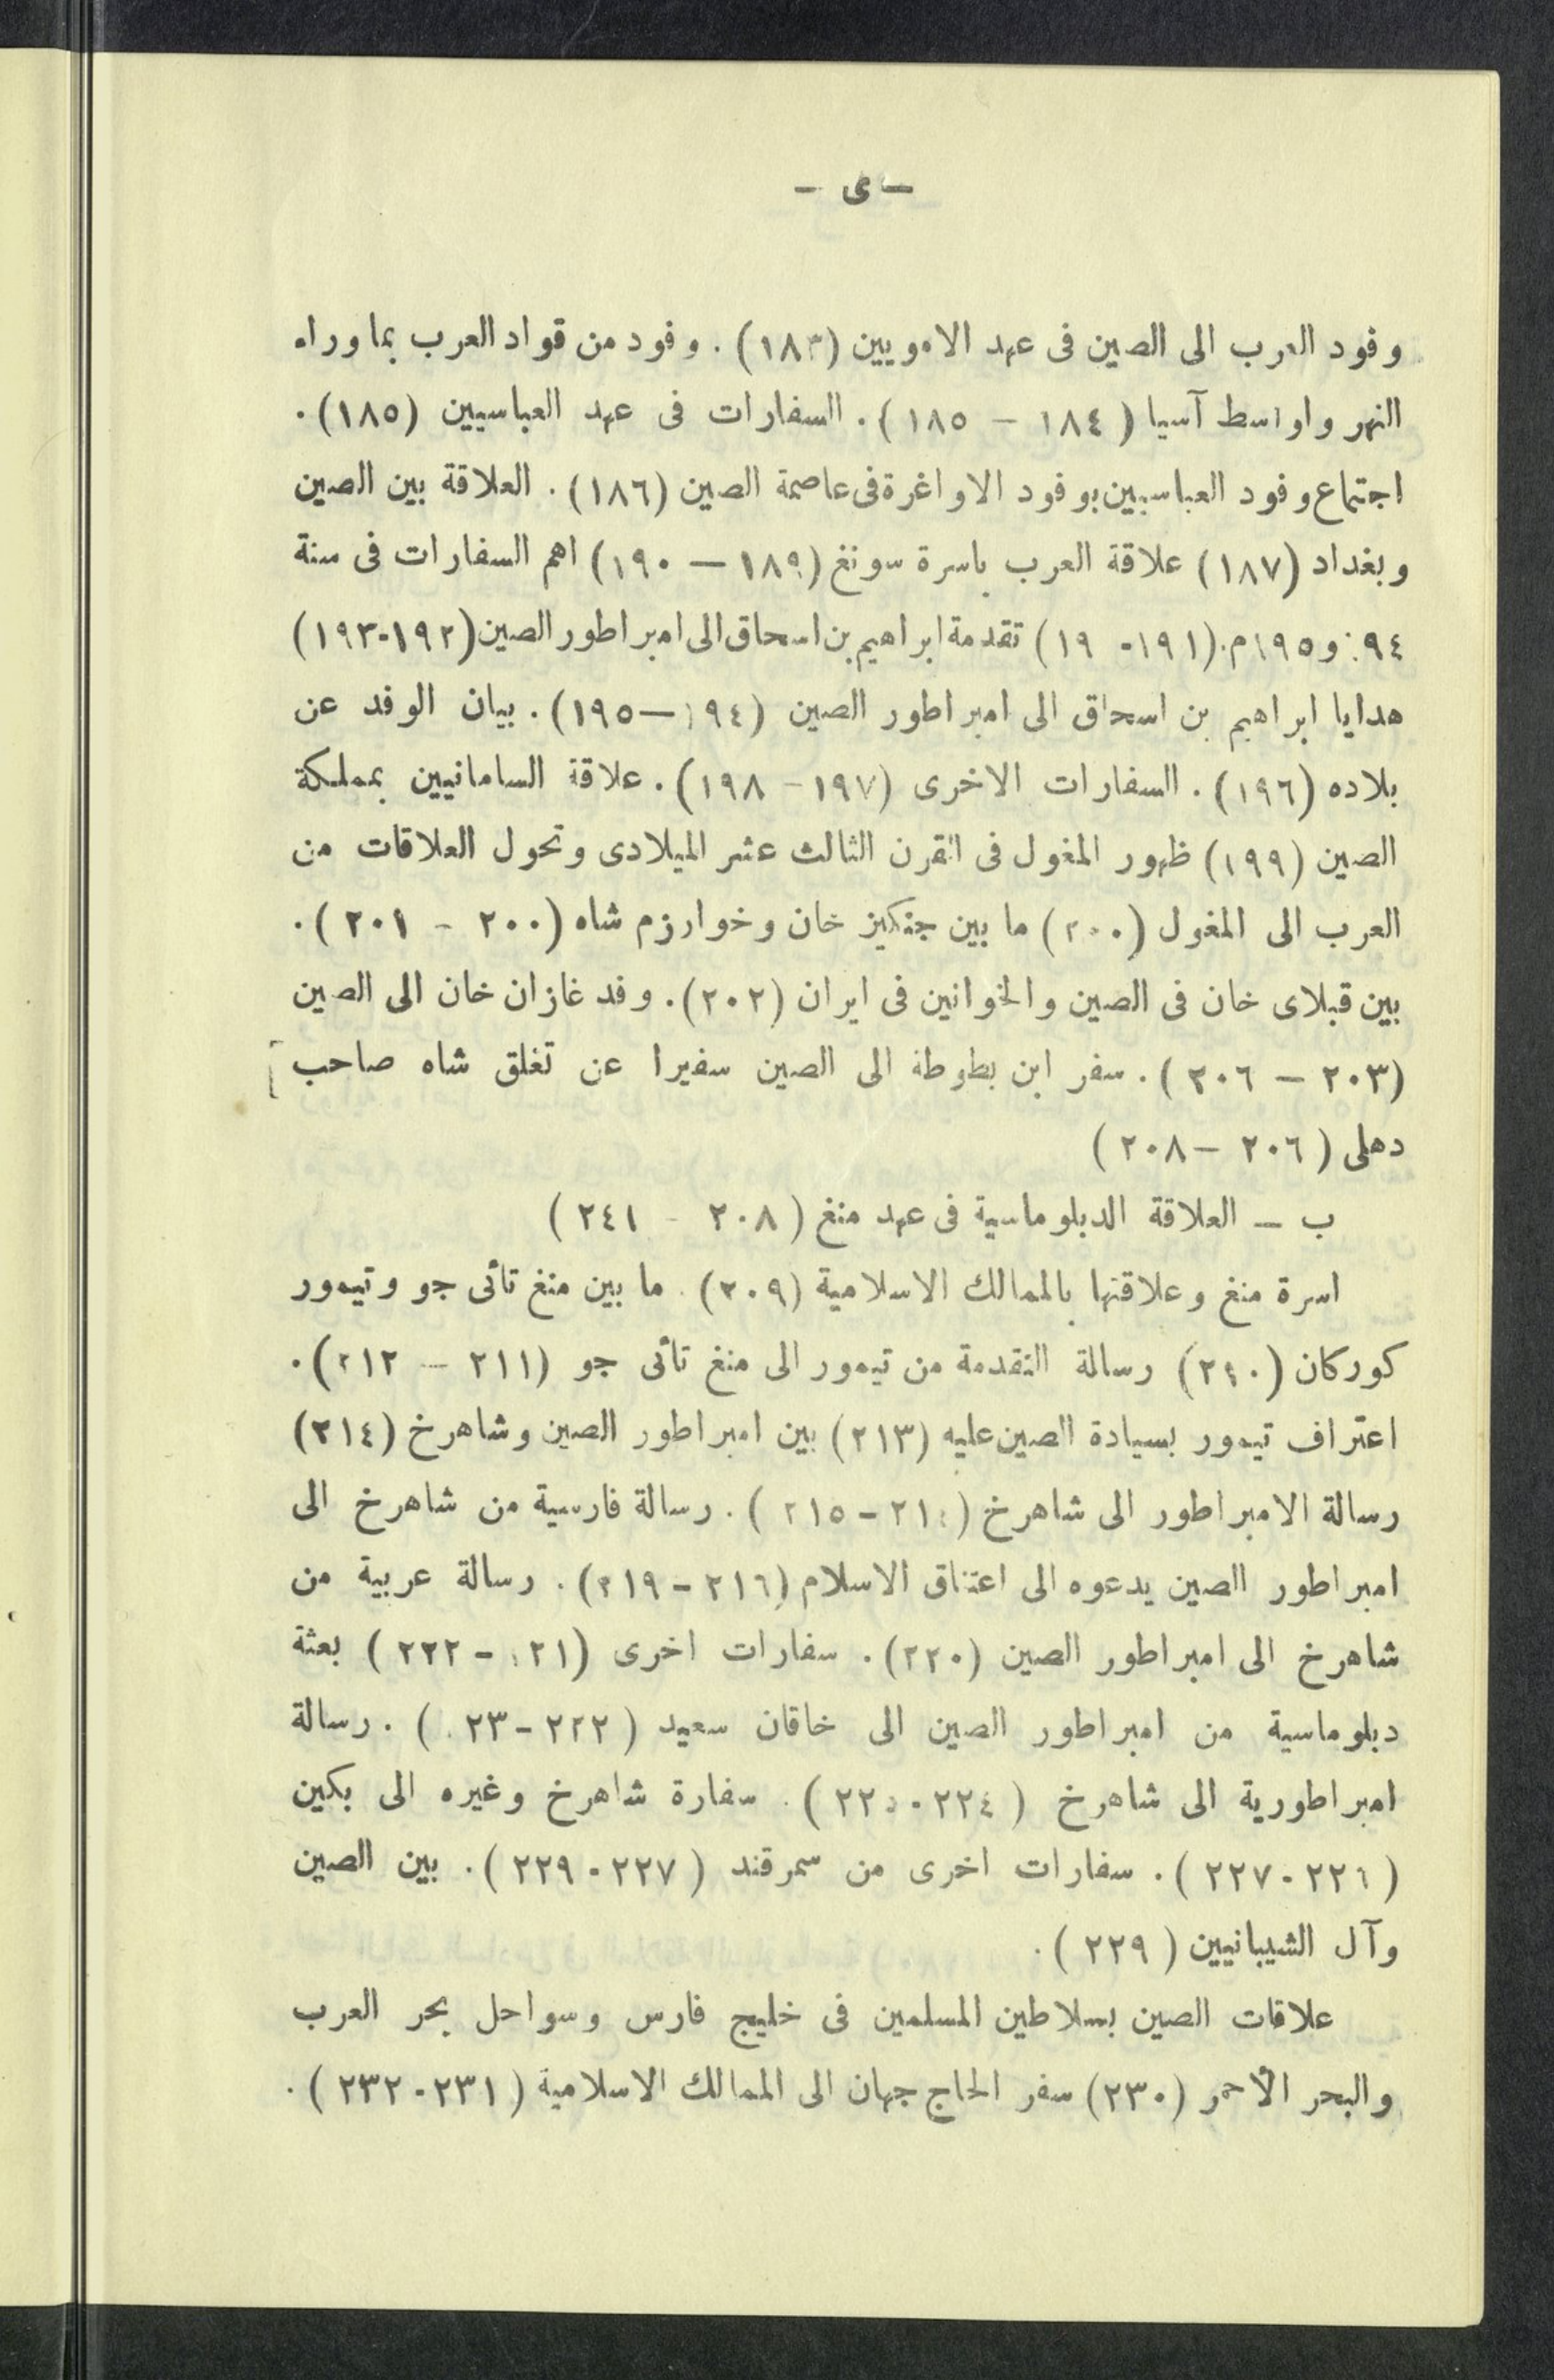 - ى -
وفود العرب الى الصين فى عهد الامويين (١٨٣) . وفود من قواد العرب بما وراء
النهر واواسط آسيا ( ١٨٤ - ١٨٥ ) . السفارات فى عهد العباسيين (١٨٥) .
اجتماع وفود العباسيين بوفود الاواغرة فى عاصمة الصين (١٨٦) . العلاقة بين الصين
وبغداد (١٨٧) علاقة العرب باسرة سونغ (١٨٩ — ١٩٠) اهم السفارات فى سنة
تقدمة ابراهيم بن اسحاق الى امبراطور الصين (١٩٢-١٩٣)
هدايا ابراهيم بن اسحاق الى امبراطور الصين (١٩٤—١٩٥) . بيان الوفد عن
بلاده (١٩٦) . السفارات الاخرى (١٩٧ - ١٩٨) . علاقة السامانيين بمملكة
الصين (١٩٩) ظهور المغول فى القرن الثالث عشر الميلادى وتحول العلاقات من
العرب الى المغول (٢٠٠) ما بين جنكيز خان وخوارزم شاه (٢٠٠ - ٢٠١) .
بين قبلاى خان فى الصين والخوانين فى ايران (٢٠٢) . وفد غازان خان الى الصين
(٢٠٣ — ٢٠٦) . سفر ابن بطوطة الى الصين سفيرا عن تغلق شاه صاحب
دهلى ( ٢٠٦ — ٢٠٨ )
ب — العلاقة الدبلوماسية فى عهد منغ ( ٢٠٨ - ٢٤١ )
اسرة منغ وعلاقتها بالممالك الاسلامية (٢٠٩) . ما بين منغ تائى جو وتيمور
كوركان (٢١٠) رسالة التقدمة من تيمور الى منغ تائى جو (٢١١ - ٢١٢) .
اعتراف تيمور بسيادة الصين عليه (٢١٣) بين امبراطور الصين وشاهرخ (٢١٤)
رسالة الامبراطور الى شاهرخ (٢١٤ - ٢١٥ ) . رسالة فارسية من شاهرخ الى
امبراطور الصين يدعوه الى اعتناق الاسلام (٢١٦ - ٢١٩) . رسالة عربية من
شاهرخ الى امبراطور الصين (٢٢٠) . سفارات اخرى بعثة
دبلوماسية من امبراطور الصين الى خاقان سعيد . رسالة
امبراطورية الى شاهرخ ( ٢٢٤-٢٢٥ ) . سفارة شاهرخ وغيره الى بكين
( ٢٢٦-٢٢٧ ) . سفارات اخرى من سمرقند ( ٢٢٧-٢٢٩ ) . بين الصين
وآل الشيبانيين ( ٢٢٩ ) .
علاقات الصين بسلاطين المسلمين فى خليج فارس وسواحل بحر العرب
والبحر الأحمر (٢٣٠) سفر الحاج جهان الى الممالك الاسلامية (٢٣١-٢٣٢ ) .